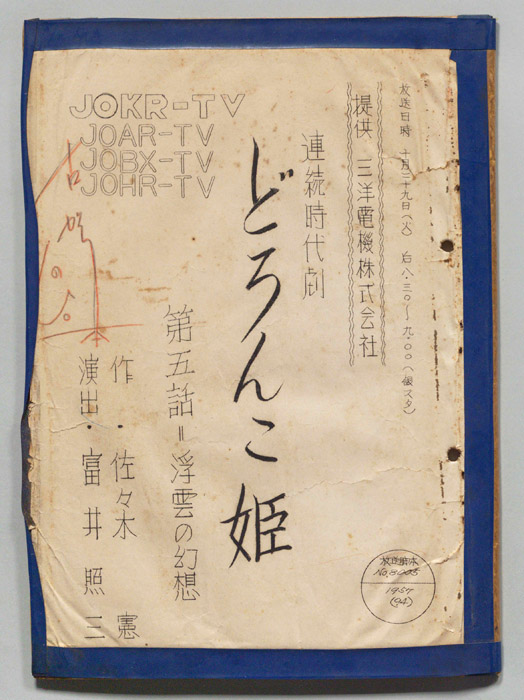 放送日時 十月二十九日(火) 后八・三〇〜九・〇〇(銀スタ)
提供 三洋電機株式会社
連続時代劇
どろんこ姫
第五話=浮雲の幻想
作・佐々木 憲
演出・富井照三
JOKR-TV
JOAR-TV
JOBX-TV
JOHR-TV
放送台本
No.8005
1957
(94)